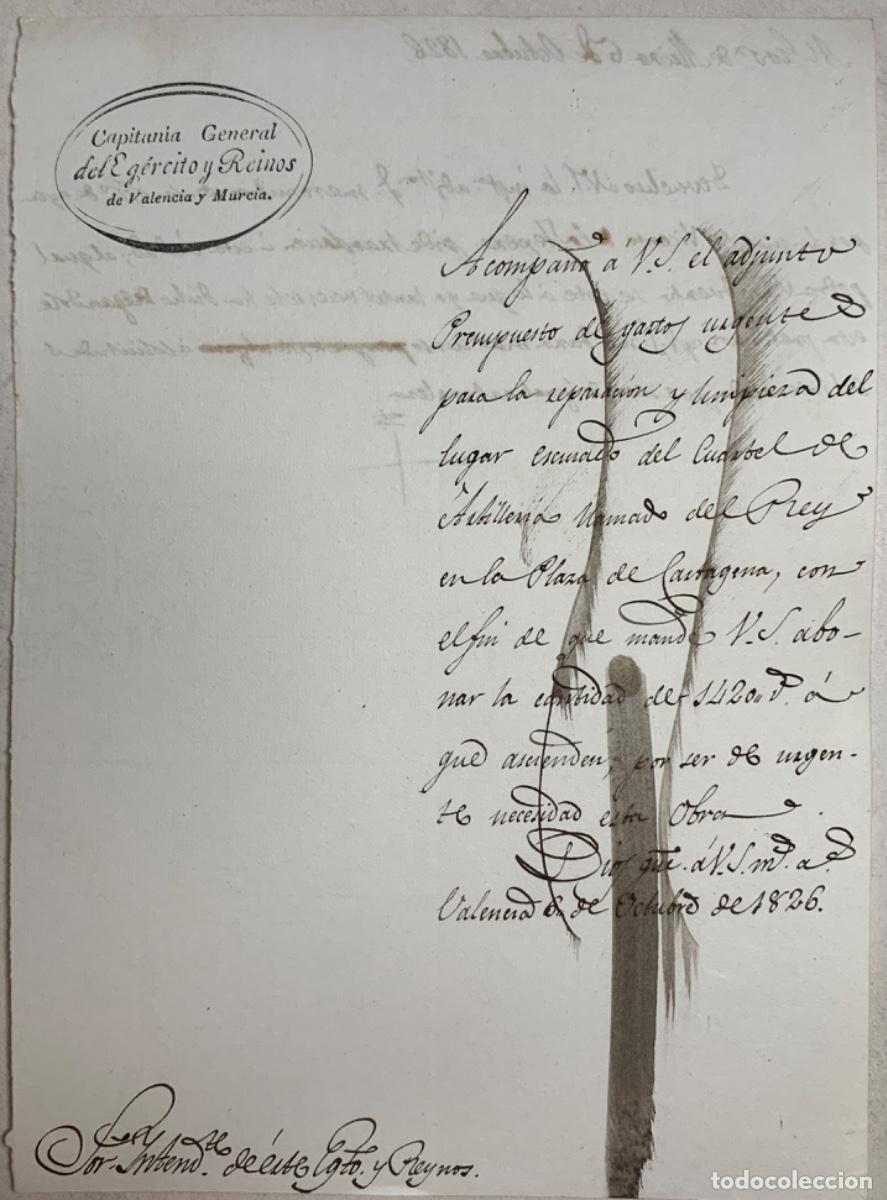 Capitania General
del Egército y Reinos
de Valencia y Murcia.
Acompaño á V.S. el adjunto
Presupuesto de gastos urgentes
para la reparacion y limpieza del
lugar escusado del Cuartel de
Artilleria llamado del Rey
en la Plaza de Cartagena, con
el fin de que mande V.S. abo-
nar la cantidad de 1420,, r.s á
que ascienden, por ser de urgen-
te necesidad esta Obra.
Dios gue. á V.S. m.s a.s
Valencia 6 de Octubre de 1826.
Sor. Intend.te de éste Egto. y Reynos.
todocoleccion